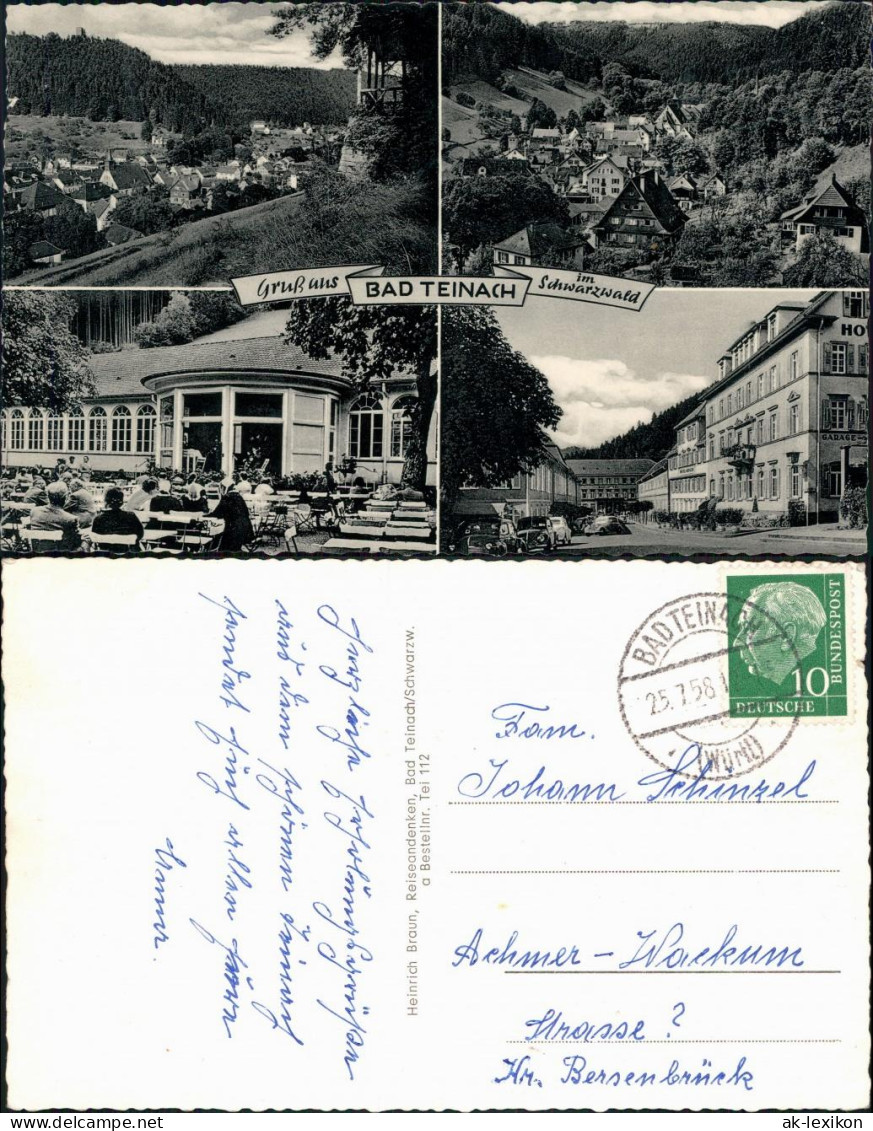 Gruß aus
BAD TEINACH
im
Schwarzwald
HO
GARAGE
BAD TEINACH
25.7.58
(Württ)
10
DEUTSCHE
BUNDESPOST
Fam.
Johann Schinzel
Achmer - Wackum
Strasse?
Kr. Bersenbrück
Heinrich Braun, Reiseandenken, Bad Teinach/Schwarzw.
a Bestellnr. Tei 112
Herzliche
aus dem schönen
sendet Euch allen
ak-lexikon